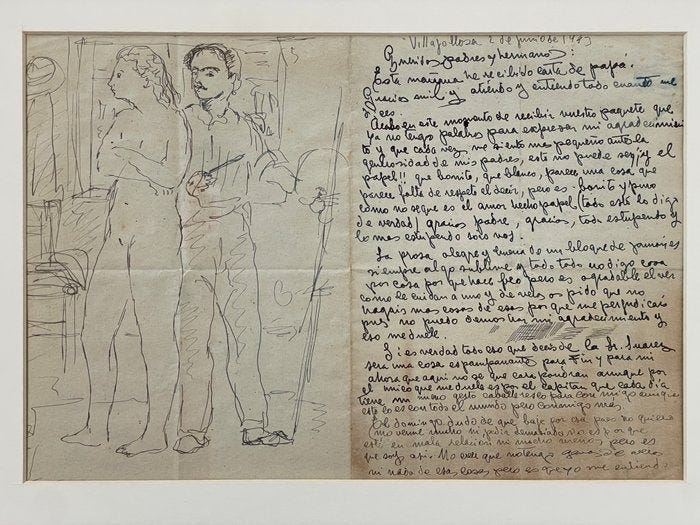 Villajoyosa 2 de junio de 19
Queridos padres y hermanos:
Esta mañana he recibido carta de papá.
Gracias mil y atiendo y entiendo todo cuanto me
dices.
Acabo en este momento de recibir vuestro paquete que
ya no tengo palabras para expresar mi agradecimien
to y que cada vez me siento mas pequeño ante la
generosidad de mis padres, esto no puede ser, ¡y el
papel!! que bonito, que blanco, parece una cosa que
parece falta de respeto el decir, pero es: bonito y puro
como no se que es el amor hecho papel (todo esto lo digo
de verdad) gracias padre, gracias, todo estupendo y
lo mas estupendo sois vos.
La prosa alegre y de un bloque de jamón es
siempre algo sublime y todo todo no digo cosa
por cosa por que hace feo pero es agradable el ver
como le cuidan a uno y de veras os pido que no
hagais mas cosas de esas por que me perjudicais
pues no puedo demostrar mi agradecimiento y
eso me duele.
Si es verdad todo eso que decis de la Sr. Suarez
sera una cosa para Fin y para mi
ahora que aqui no se que cara pondran aunque por
el unico que me duele es por el capitan que cada dia
tiene un gesto caballeresco para conmigo aunque
este lo es con todo el mundo pero conmigo mas.
El domingo dudo de que baje por acá pues no quiero
mucho ni pedir demasiado no es por que
está en mala relacion ni mucho menos, pero es
que soy asi. No creer que no tengo ganas de veros
ni nada de esas cosas pero es que yo me entiendo.